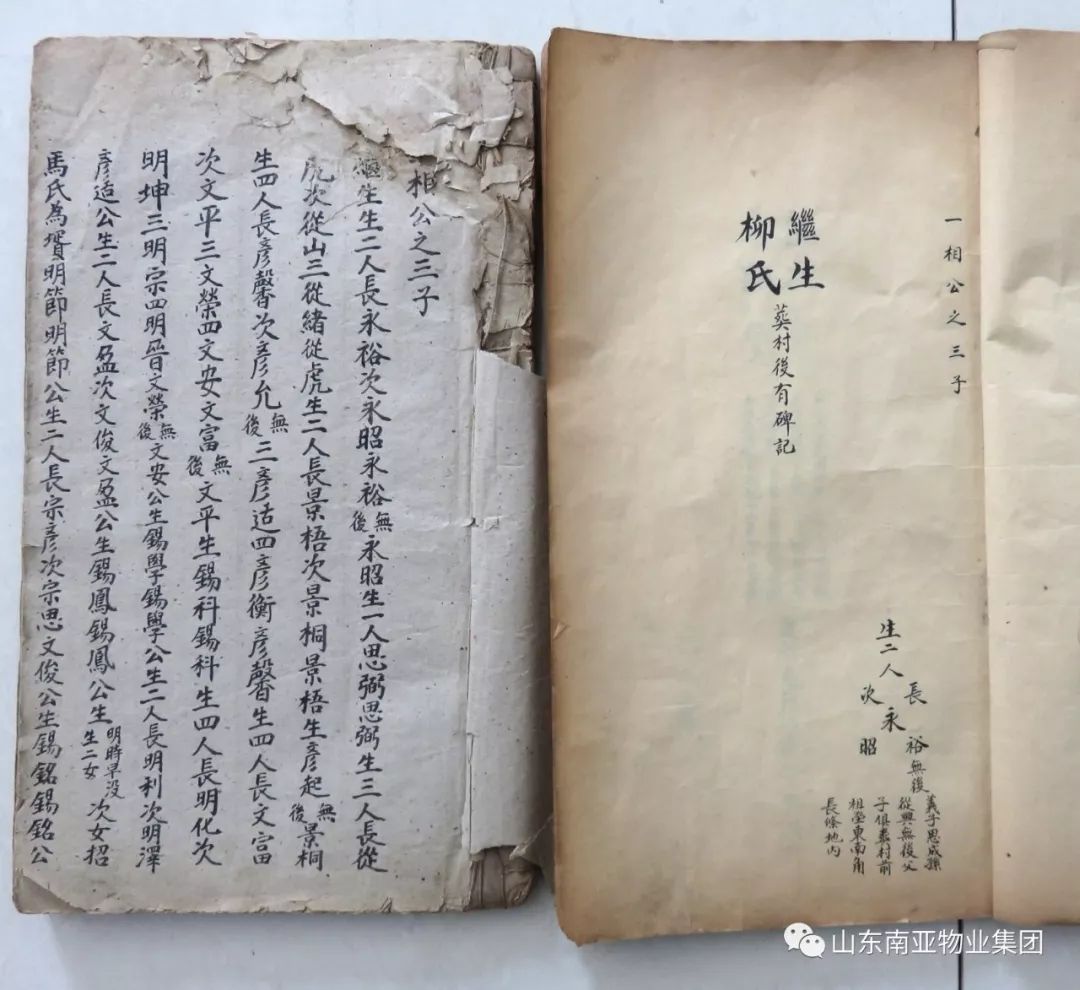 相公之三子
繼生生二人長永裕次永昭永裕無後永昭生一人思弼思弼生三人長從
虎次從山三從緒從虎生二人長景梧次景桐景梧生彥起無後景桐
生四人長彥馨次彥允無後三彥适四彥衡彥馨生四人長文富
次文平三文榮四文安文富無後文平生錫科錫科生四人長明化次
明坤三明宗四明晉文榮無後文安公生錫學錫學公生二人長明利次明澤
彥适公生二人長文盈次文俊文盈公生錫鳳錫鳳公生明時早没生二女次女招
馬氏為壻明節明節公生二人長宗彥次宗思文俊公生錫銘錫銘公
一相公之三子
繼生
柳氏
葬村後有碑記
生二人
長永裕無後
義子思成孫
從興無後父
子俱葬村前
祖塋東南角
長條地内
次永昭
山东南亚物业集团